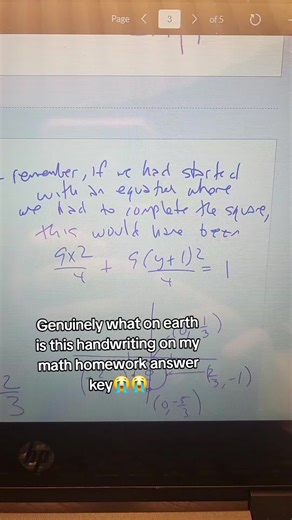 Page < 3 > of 5
- remember, if we had started
with an equation where
we had to complete the square,
this would have been
9x2/4 + 9(y+1)2/4 = 1
Genuinely what on earth
is this handwriting on my
math homework answer
key😭😭
1/3)
2/3
(2/3, -1)
(0, -5/3)
hp